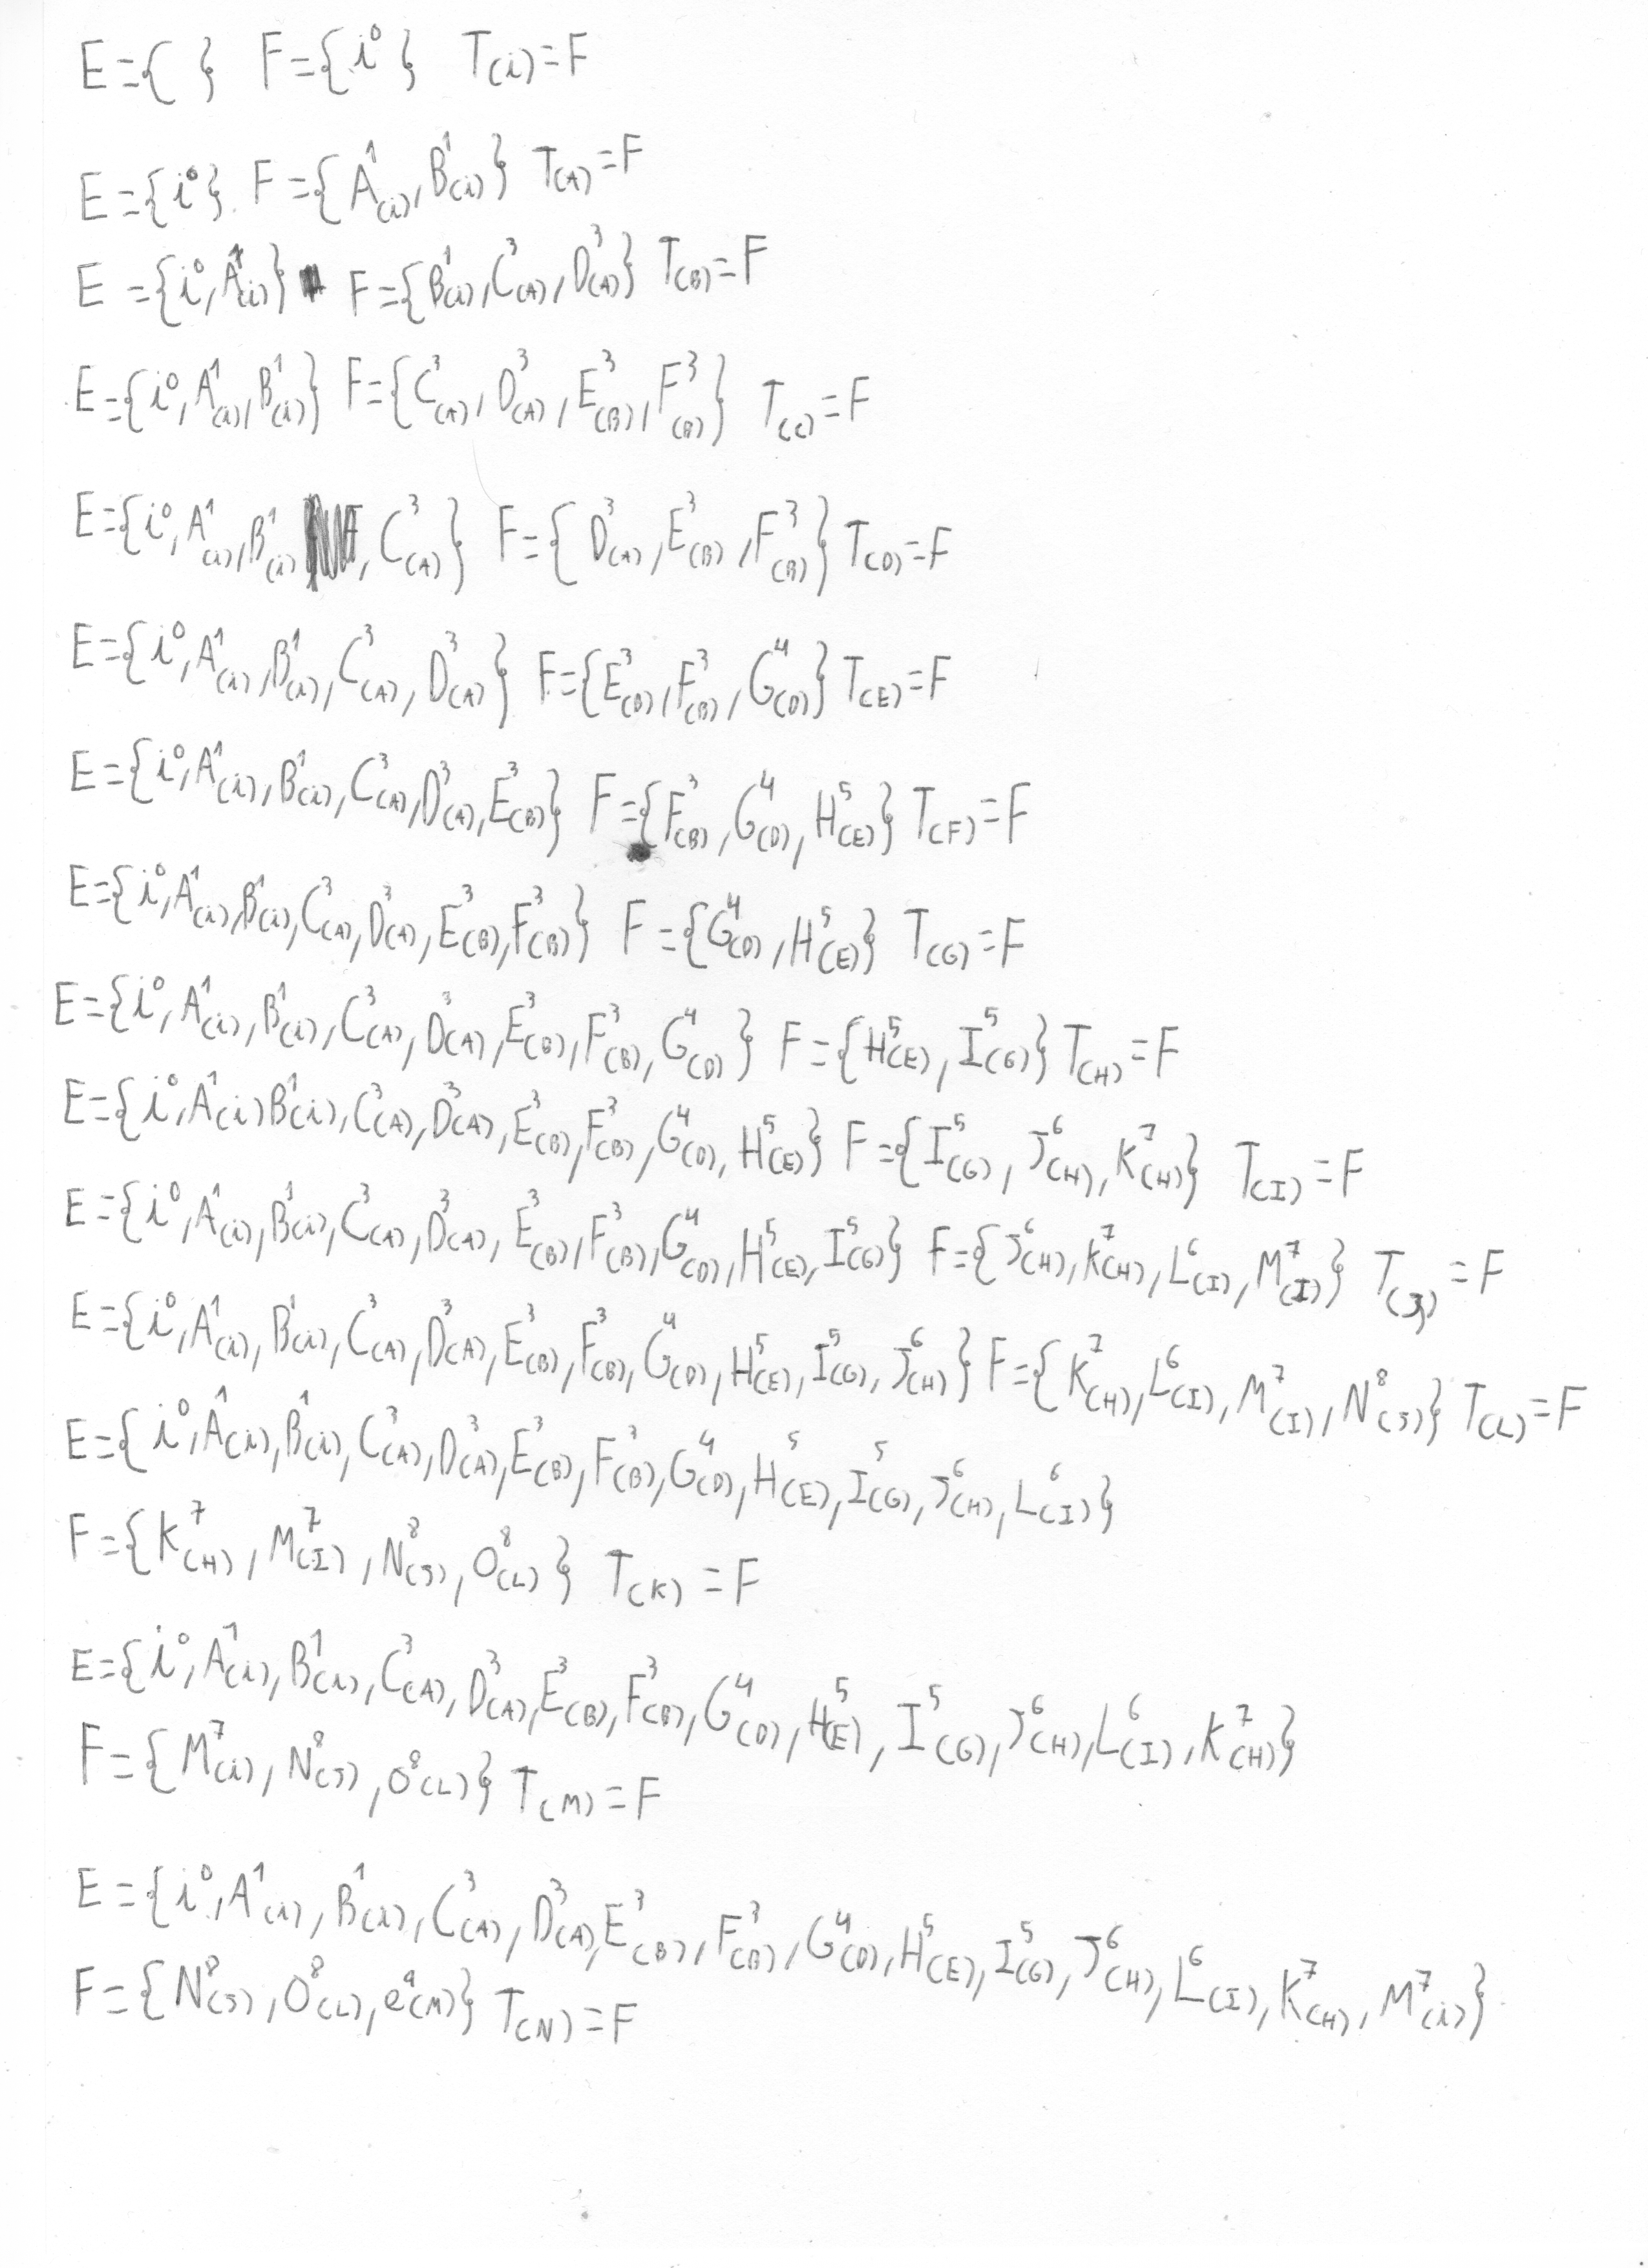 E={ } F={i⁰} T(i)=F
E={i⁰} F={A¹(i), B¹(i)} T(A)=F
E={i⁰, A¹(i)} F={B¹(i), C³(A), D³(A)} T(B)=F
E={i⁰, A¹(i), B¹(i)} F={C³(A), D³(A), E³(B), F³(B)} T(C)=F
E={i⁰, A¹(i), B¹(i), C³(A)} F={D³(A), E³(B), F³(B)} T(D)=F
E={i⁰, A¹(i), B¹(i), C³(A), D³(A)} F={E³(B), F³(B), G⁴(D)} T(E)=F
E={i⁰, A¹(i), B¹(i), C³(A), D³(A), E³(B)} F={F³(B), G⁴(D), H⁵(E)} T(F)=F
E={i⁰, A¹(i), B¹(i), C³(A), D³(A), E³(B), F³(B)} F={G⁴(D), H⁵(E)} T(G)=F
E={i⁰, A¹(i), B¹(i), C³(A), D³(A), E³(B), F³(B), G⁴(D)} F={H⁵(E), I⁵(G)} T(H)=F
E={i⁰, A¹(i) B¹(i), C³(A), D³(A), E³(B), F³(B), G⁴(D), H⁵(E)} F={I⁵(G), J⁶(H), K⁷(H)} T(I)=F
E={i⁰, A¹(i), B¹(i), C³(A), D³(A), E³(B), F³(B), G⁴(D), H⁵(E), I⁵(G)} F={J⁶(H), K⁷(H), L⁶(I), M⁷(I)} T(J)=F
E={i⁰, A¹(i), B¹(i), C³(A), D³(A), E³(B), F³(B), G⁴(D), H⁵(E), I⁵(G), J⁶(H)} F={K⁷(H), L⁶(I), M⁷(I), N⁸(J)} T(L)=F
E={i⁰, A¹(i), B¹(i), C³(A), D³(A), E³(B), F³(B), G⁴(D), H⁵(E), I⁵(G), J⁶(H), L⁶(I)}
F={K⁷(H), M⁷(I), N⁸(J), O⁸(L)} T(K)=F
E={i⁰, A¹(i), B¹(i), C³(A), D³(A), E³(B), F³(B), G⁴(D), H⁵(E), I⁵(G), J⁶(H), L⁶(I), K⁷(H)}
F={M⁷(i), N⁸(J), O⁸(L)} T(M)=F
E={i⁰, A¹(i), B¹(i), C³(A), D³(A), E³(B), F³(B), G⁴(D), H⁵(E), I⁵(G), J⁶(H), L⁶(I), K⁷(H), M⁷(i)}
F={N⁸(J), O⁸(L), e⁹(M)} T(N)=F